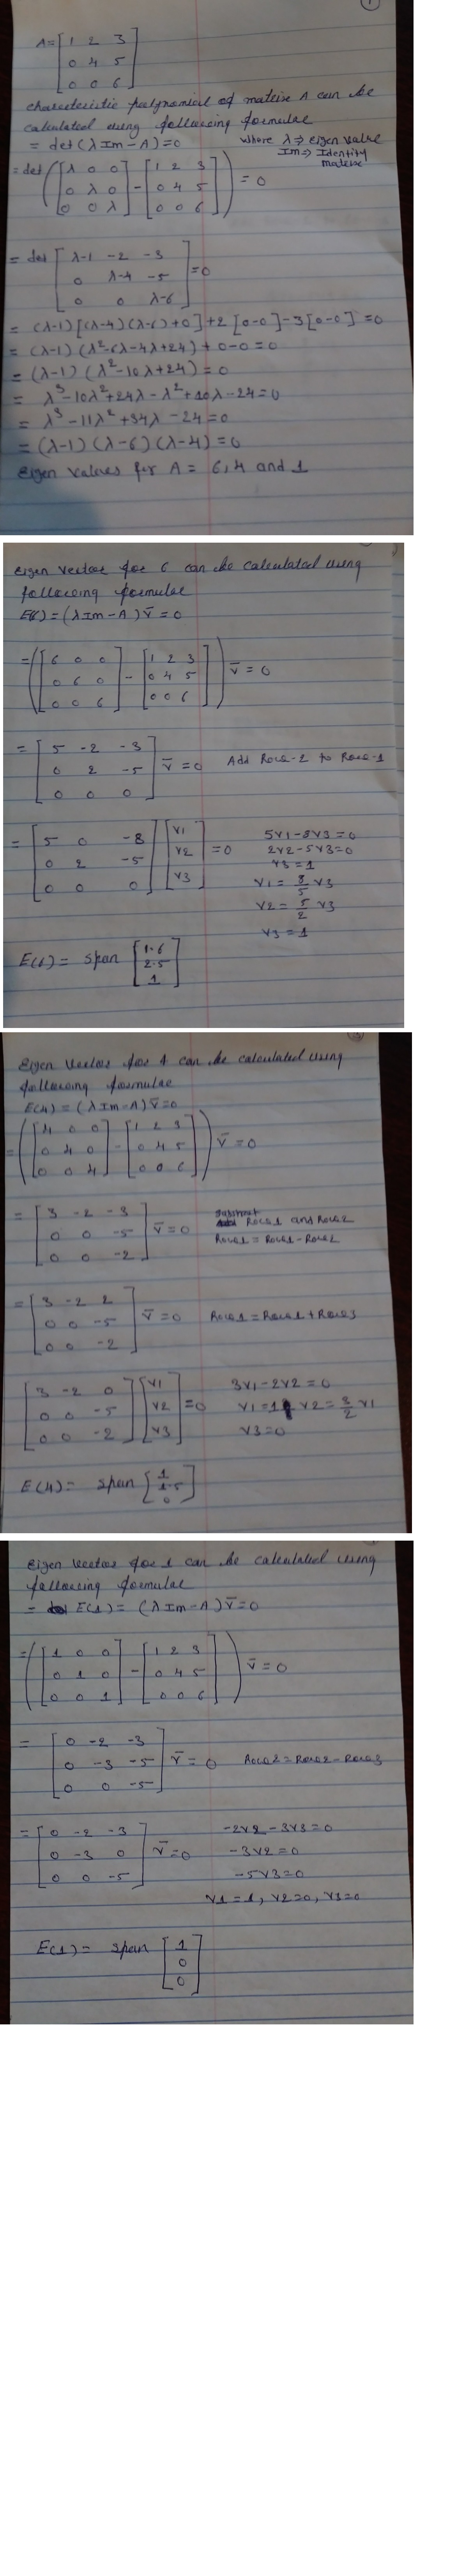 1
A = [ 1 2 3
0 4 5
0 0 6 ]
characteristic polynomial of matrix A can be
calculated using following formulae
= det (λ Im - A) = 0 where λ ⇒ eigen value
Im ⇒ Identity
matrix
= det ( [ λ 0 0
0 λ 0
0 0 λ ] - [ 1 2 3
0 4 5
0 0 6 ] ) = 0
= det [ λ-1 -2 -3
0 λ-4 -5
0 0 λ-6 ] = 0
= (λ-1) [(λ-4)(λ-6)+0] + 2 [0-0] - 3 [0-0] = 0
= (λ-1) (λ²-6λ-4λ+24) + 0-0 = 0
= (λ-1) (λ²-10λ+24) = 0
= λ³-10λ²+24λ-λ²+10λ-24 = 0
= λ³-11λ²+34λ-24 = 0
= (λ-1) (λ-6) (λ-4) = 0
Eigen values for A = 6, 4 and 1
Eigen vector for 6 can be calculated using
following formulae
E(6) = (λ Im - A) v̄ = 0
= ( [ 6 0 0
0 6 0
0 0 6 ] - [ 1 2 3
0 4 5
0 0 6 ] ) v̄ = 0
= [ 5 -2 -3
0 2 -5
0 0 0 ] v̄ = 0 Add Row-2 to Row-1
= [ 5 0 -8
0 2 -5
0 0 0 ] [ v1
v2
v3 ] = 0
5v1-8v3 = 0
2v2-5v3 = 0
v3 = 1
v1 = 8/5 v3
v2 = 5/2 v3
v3 = 1
E(6) = span [ 1.6
2.5
1 ]
Eigen vector for 4 can be calculated using
following formulae
E(4) = (λ Im - A) v̄ = 0
= ( [ 4 0 0
0 4 0
0 0 4 ] - [ 1 2 3
0 4 5
0 0 6 ] ) v̄ = 0
= [ 3 -2 -3
0 0 -5
0 0 -2 ] v̄ = 0
subtract
Row1 and Row2
Row1 = Row1 - Row2
= [ 3 -2 2
0 0 -5
0 0 -2 ] v̄ = 0 Row1 = Row1 + Row3
[ 3 -2 0
0 0 -5
0 0 -2 ] [ v1
v2
v3 ] = 0
3v1-2v2 = 0
v1 = 1 v2 = 3/2 v1
v3 = 0
E(4) = span [ 1
1.5
0 ]
Eigen vector for 1 can be calculated using
following formulae
= E(1) = (λ Im - A) v̄ = 0
= ( [ 1 0 0
0 1 0
0 0 1 ] - [ 1 2 3
0 4 5
0 0 6 ] ) v̄ = 0
= [ 0 -2 -3
0 -3 -5
0 0 -5 ] v̄ = 0 Row2 = Row2 - Row3
= [ 0 -2 -3
0 -3 0
0 0 -5 ] v̄ = 0
-2v2-3v3 = 0
-3v2 = 0
-5v3 = 0
v1 = 1, v2 = 0, v3 = 0
E(1) = span [ 1
0
0 ]